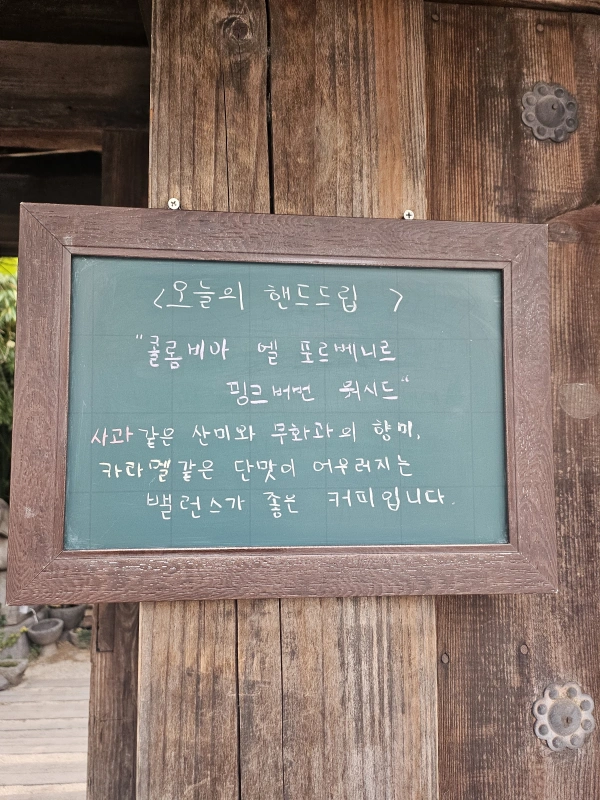 <오늘의 핸드드립 >
"콜롬비아 엘 포르베니르
핑크버번 워시드"
사과같은 산미와 무화과의 향미,
카라멜같은 단맛이 어우러지는
밸런스가 좋은 커피입니다.